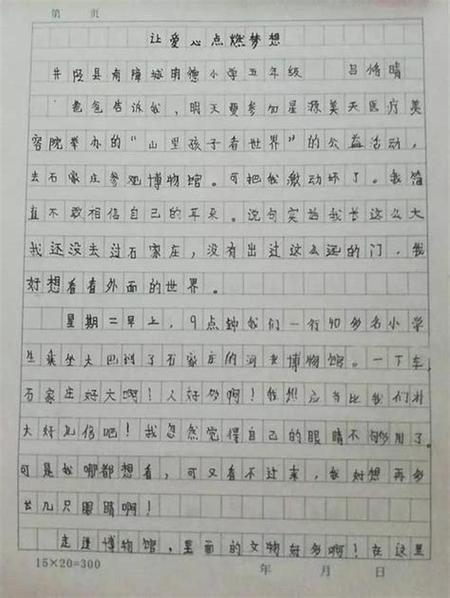 第 页
让爱心点燃梦想
井陉县南障城明德小学五年级 吕倩晴
爸爸告诉我，明天要参加星源美天医疗美
容院举办的“山里孩子看世界”的公益活动，
去石家庄参观博物馆。可把我激动坏了。我简
直不敢相信自己的耳朵。说句实话我长这么大
我还没去过石家庄，没有出过这么远的门，我
好想看看外面的世界。
星期二早上，9点钟我们一行40多名小学
生乘坐大巴到了石家庄的河北博物馆。一下车，
石家庄好大啊！人好多啊！我想应当比我们村
大好几倍吧！我忽然觉得自己的眼睛不够用了。
可是我哪都想看，可又看不过来，我好想再多
出几只眼睛啊！
走进博物馆，里面的文物好多啊！在这里
15×20=300 年 月 日